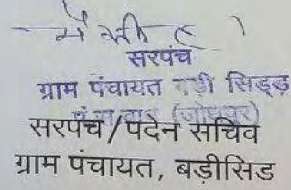 सरपंच
ग्राम पंचायत बड़ी सिड्ड
(जोधपुर)
सरपंच/पदेन सचिव
ग्राम पंचायत, बड़ीसिड